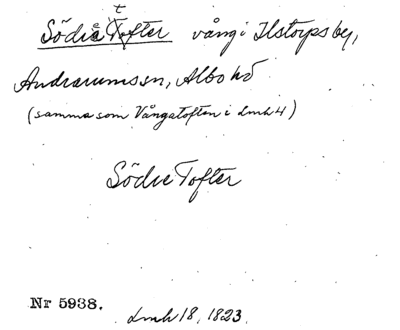 Södra Tofter vång i Ilstorps by,
Andrarums sn, Albo hd
(samma som Vångatoften i Lmh 4)
Södre Tofter
Nr 5938.
Lmh 18, 1823.